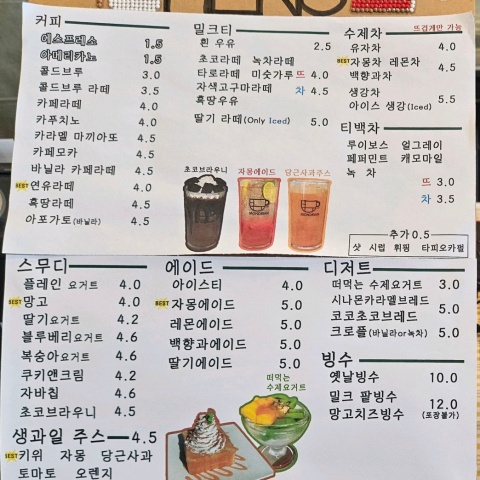 커피
에스프레소 1.5
아메리카노 1.5
콜드브루 3.0
콜드브루 라떼 3.5
카페라떼 4.0
카푸치노 4.0
카라멜 마끼아또 4.5
카페모카 4.5
바닐라 카페라떼 4.5
BEST 연유라떼 4.0
흑당라떼 4.5
아포가토(바닐라) 4.5
밀크티
흰 우유 2.5
초코라떼 녹차라떼
타로라떼 미숫가루 뜨 4.0
자색고구마라떼 차 4.5
흑땅우유
딸기 라떼(Only Iced) 5.0
초코브라우니 자몽에이드 당근사과주스
수제차 뜨겁게만 가능
유자차 4.0
BEST 자몽차 레몬차 4.5
백향과차
생강차 5.5
아이스 생강(Iced)
티백차
루이보스 얼그레이
페퍼민트 캐모마일
녹 차
뜨 3.0
차 3.5
추가 0.5
샷 시럽 휘핑 타피오카펄
스무디
플레인 요거트 4.0
BEST 망고 4.0
딸기요거트 4.2
블루베리요거트 4.6
복숭아요거트 4.6
쿠키앤크림 4.2
자바칩 4.6
초코브라우니 4.5
생과일 주스 4.5
BEST 키위 자몽 당근사과
토마토 오렌지
에이드
아이스티 4.0
BEST 자몽에이드 5.0
레몬에이드 5.0
백향과에이드 5.0
딸기에이드 5.0
떠먹는
수제요거트
디저트
떠먹는 수제요거트 3.0
시나몬카라멜브레드
코코초코브레드 5.0
크로플(바닐라or녹차) 5.0
빙수
옛날빙수 10.0
밀크 팥빙수 12.0
망고치즈빙수 (포장불가)